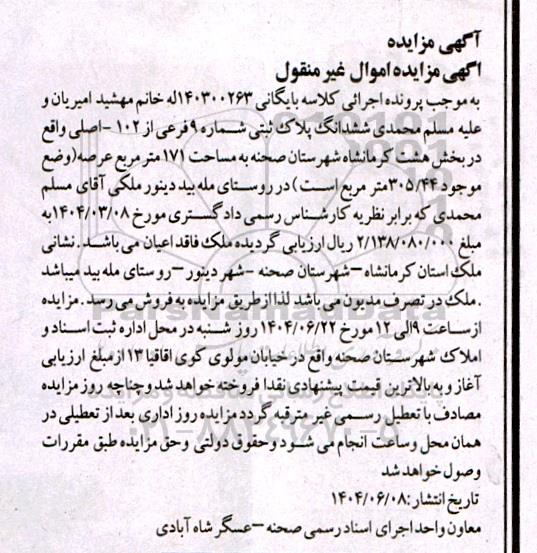 آگهی مزایده
اگهی مزایده اموال غیر منقول
به موجب پرونده اجرائی کلاسه بایگانی ۱۴۰۳۰۰۲۶۳له خانم مهشید امیریان و
علیه مسلم محمدی ششدانگ پلاک ثبتی شماره ۹ فرعی از ۱۰۲ -اصلی واقع
در بخش هشت کرمانشاه شهرستان صحنه به مساحت ۱۷۱ متر مربع عرصه(وضع
موجود ۳۰۵/۴۴متر مربع است ) در روستای مله بید دینور ملکی آقای مسلم
محمدی که برابر نظریه کارشناس رسمی دادگستری مورخ ۱۴۰۴/۰۳/۰۸به
مبلغ ۲/۱۳۸/۰۸۰/۰۰۰ ریال ارزیابی گردیده ملک فاقد اعیان می باشد .نشانی
ملک استان کرمانشاه –شهرستان صحنه -شهر دینور –روستای مله بید میباشد
.ملک در تصرف مدیون می باشد لذا از طریق مزایده به فروش می رسد .مزایده
از ساعت ۹الی ۱۲ مورخ ۱۴۰۴/۰۶/۲۲ روز شنبه در محل اداره ثبت اسناد و
املاک شهرستان صحنه واقع در خیابان مولوی کوی اقاقیا ۱۳ از مبلغ ارزیابی
آغاز و به بالاترین قیمت پیشنهادی نقدا فروخته خواهد شد وچناچه روز مزایده
مصادف با تعطیل رسمی غیر مترقبه گردد مزایده روز اداری بعد از تعطیلی در
همان محل وساعت انجام می شود وحقوق دولتی وحق مزایده طبق مقررات
وصول خواهد شد
تاریخ انتشار :۱۴۰۴/۰۶/۰۸
معاون واحد اجرای اسناد رسمی صحنه –عسگر شاه آبادی